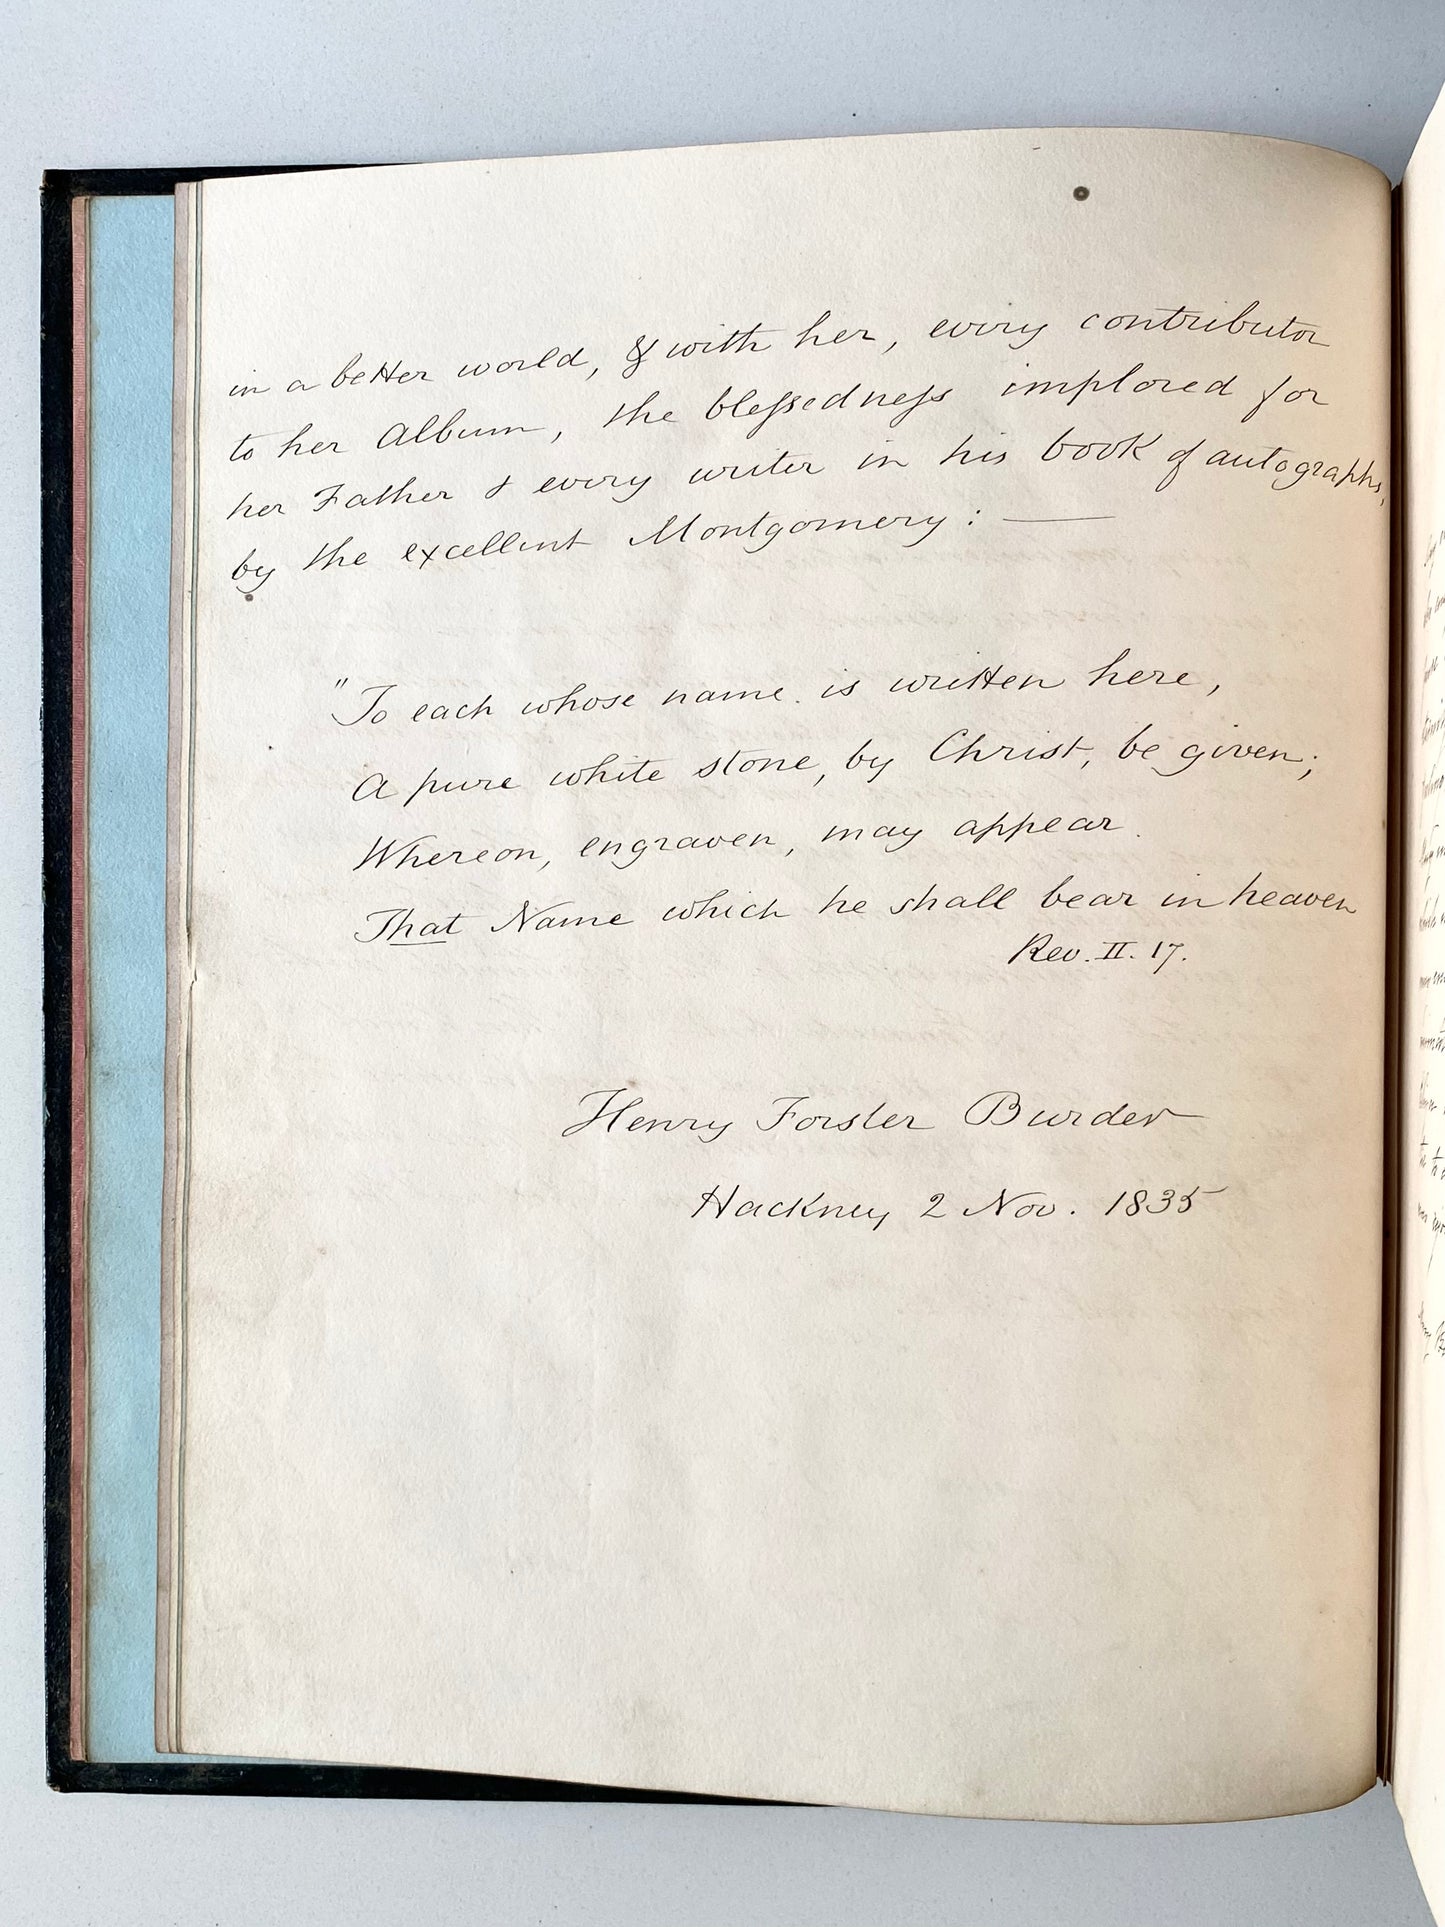 in a better world, & with her, every contributor
to her Album, the blessedness implored for
her Father & every writer in his book of autographs,
by the excellent Montgomery: —
"To each whose name is written here,
A pure white stone, by Christ, be given;
Whereon, engraven, may appear
That Name which he shall bear in heaven
Rev. II. 17.
Henry Forster Burder
Hackney 2 Nov. 1835